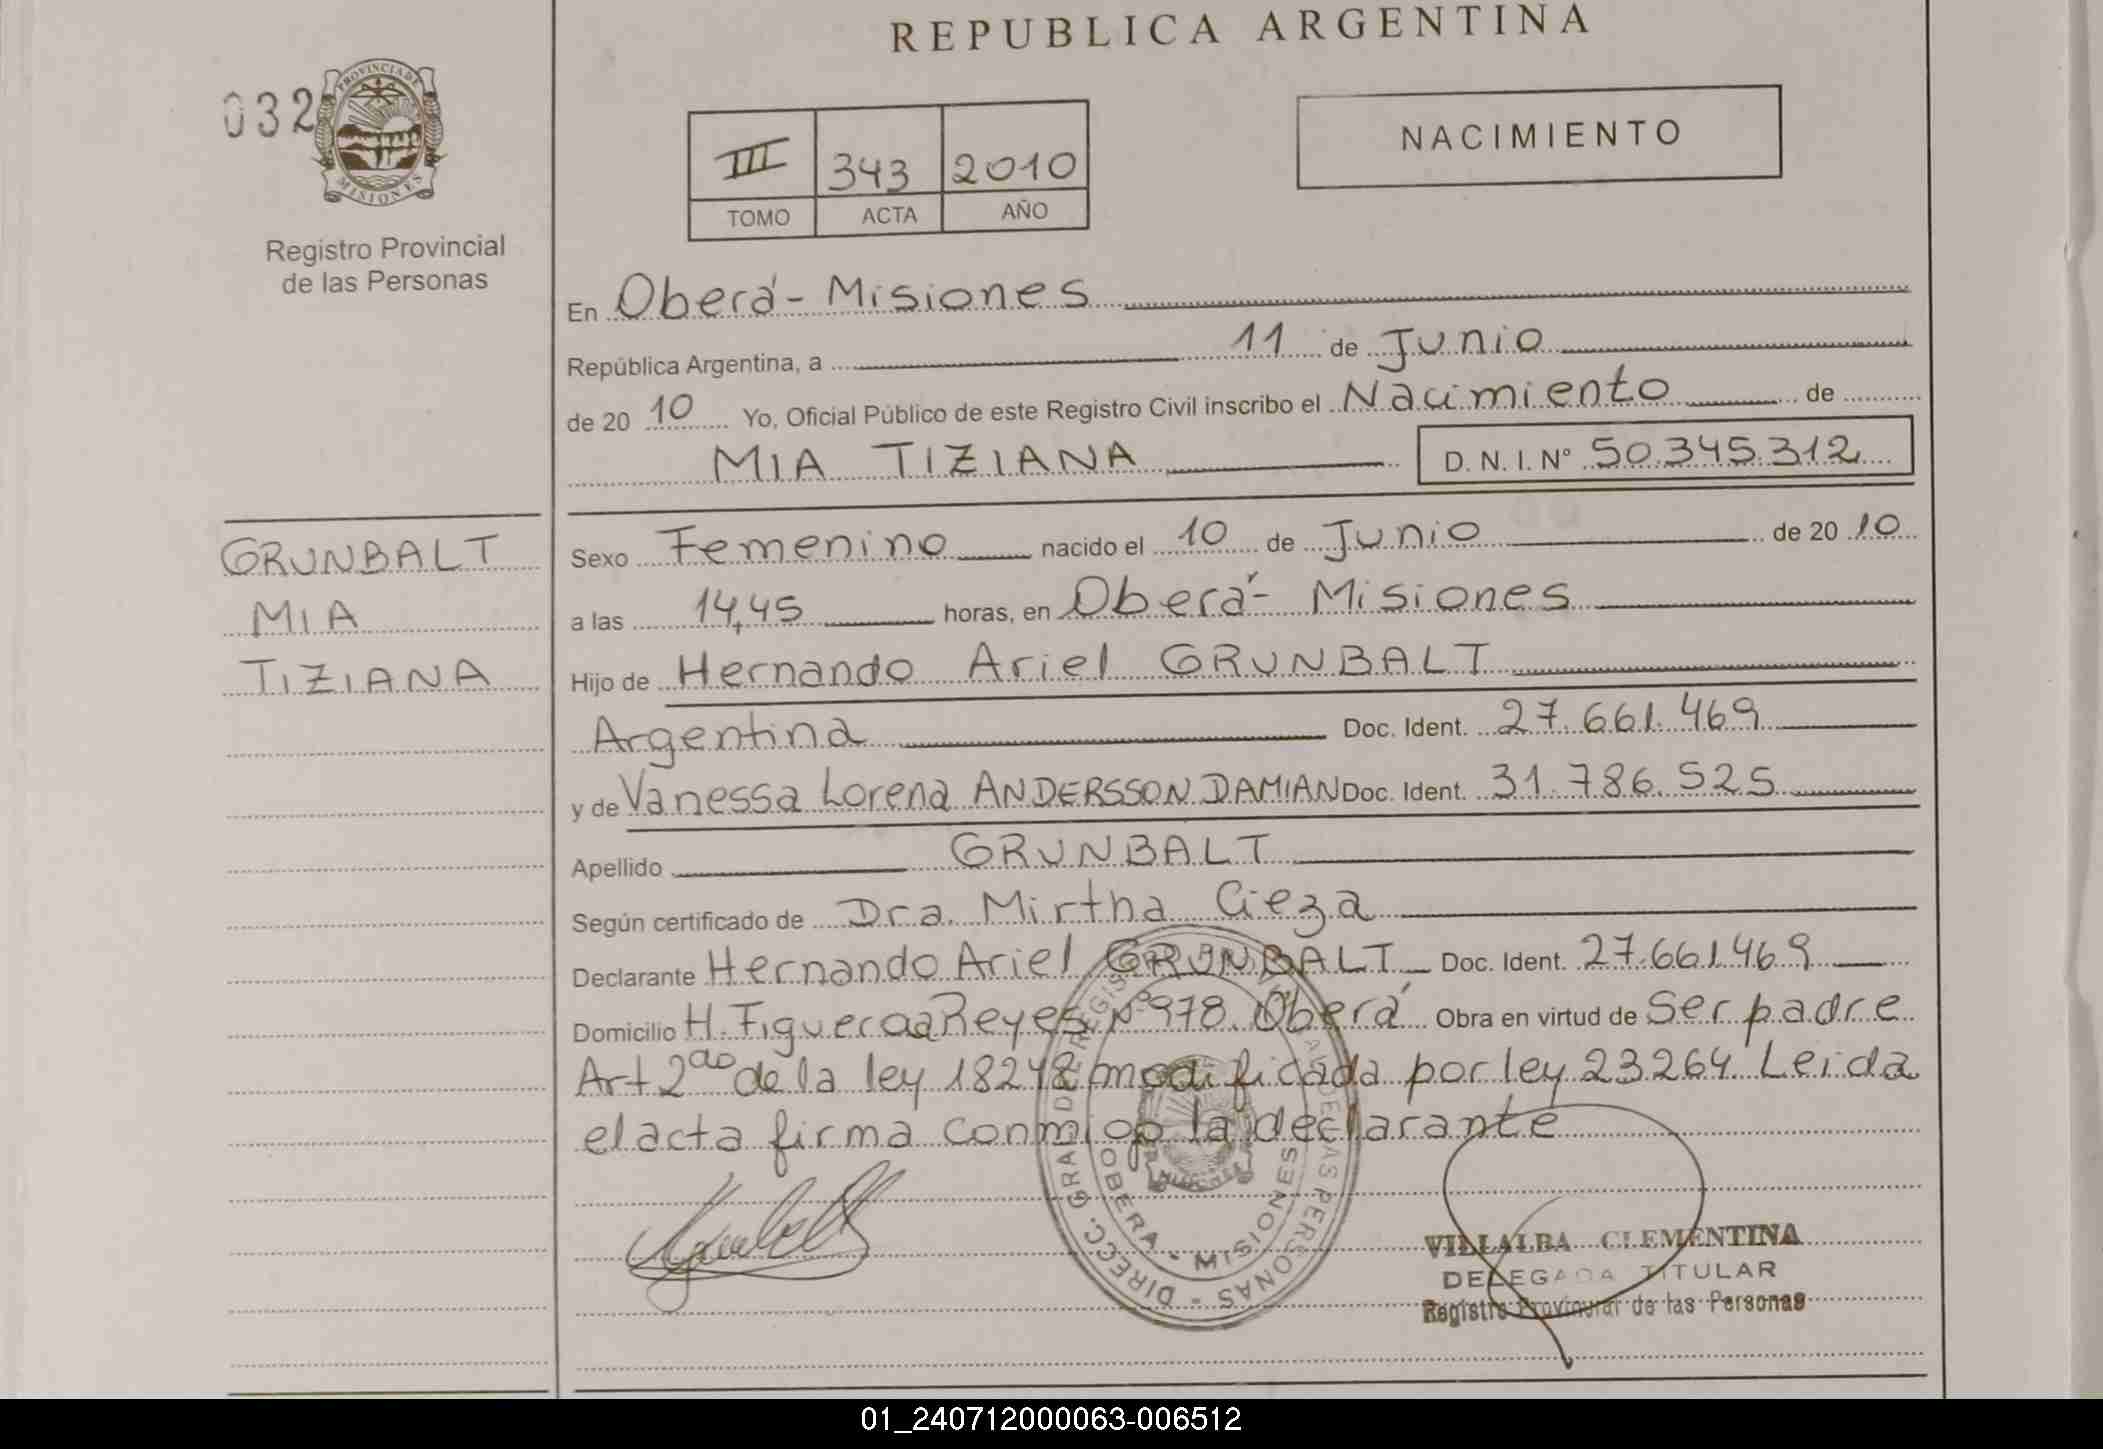 REPUBLICA ARGENTINA
032
PROVINCIA DE
MISIONES
Registro Provincial
de las Personas
III 343 2010
TOMO ACTA AÑO
NACIMIENTO
En Oberá - Misiones
República Argentina, a 11 de Junio
de 20 10 Yo, Oficial Público de este Registro Civil inscribo el Nacimiento de
MIA TIZIANA D. N. I. Nº 50.345.312
GRUNBALT
MIA
TIZIANA
Sexo Femenino nacido el 10 de Junio de 20 10
a las 14,45 horas, en Oberá - Misiones
Hijo de Hernando Ariel GRUNBALT
Argentina Doc. Ident. 27.661.469
y de Vanessa Lorena ANDERSSON DAMIAN Doc. Ident. 31.786.525
Apellido GRUNBALT
Según certificado de Dra. Mirtha Cieza
Declarante Hernando Ariel GRUNBALT Doc. Ident. 27.661.469
Domicilio H. Figueroa Reyes Nº 978. Oberá Obra en virtud de Ser padre
Art 2do de la ley 18248 modificada por ley 23264 Leida
el acta firma conmigo la declarante
OBERA - MISIONES
VILLALBA CLEMENTINA
DELEGADA TITULAR
Registro Provincial de las Personas
01_240712000063-006512